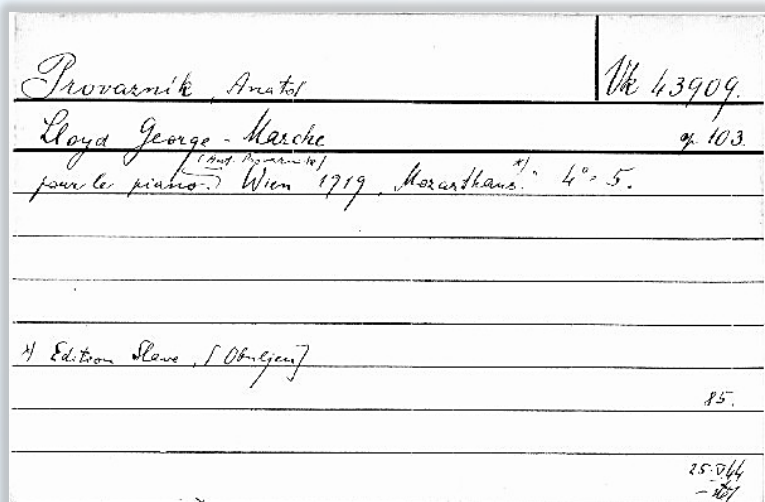 Provazník, Anatol
Vk 43909.
Lloyd George-Marche
op. 103.
(Ant. Provazník)
pour le piano. Wien 1919, Mozarthaus. *) 4° 5.
*) Edition Slave, [Obuljen]
85.
25.V44